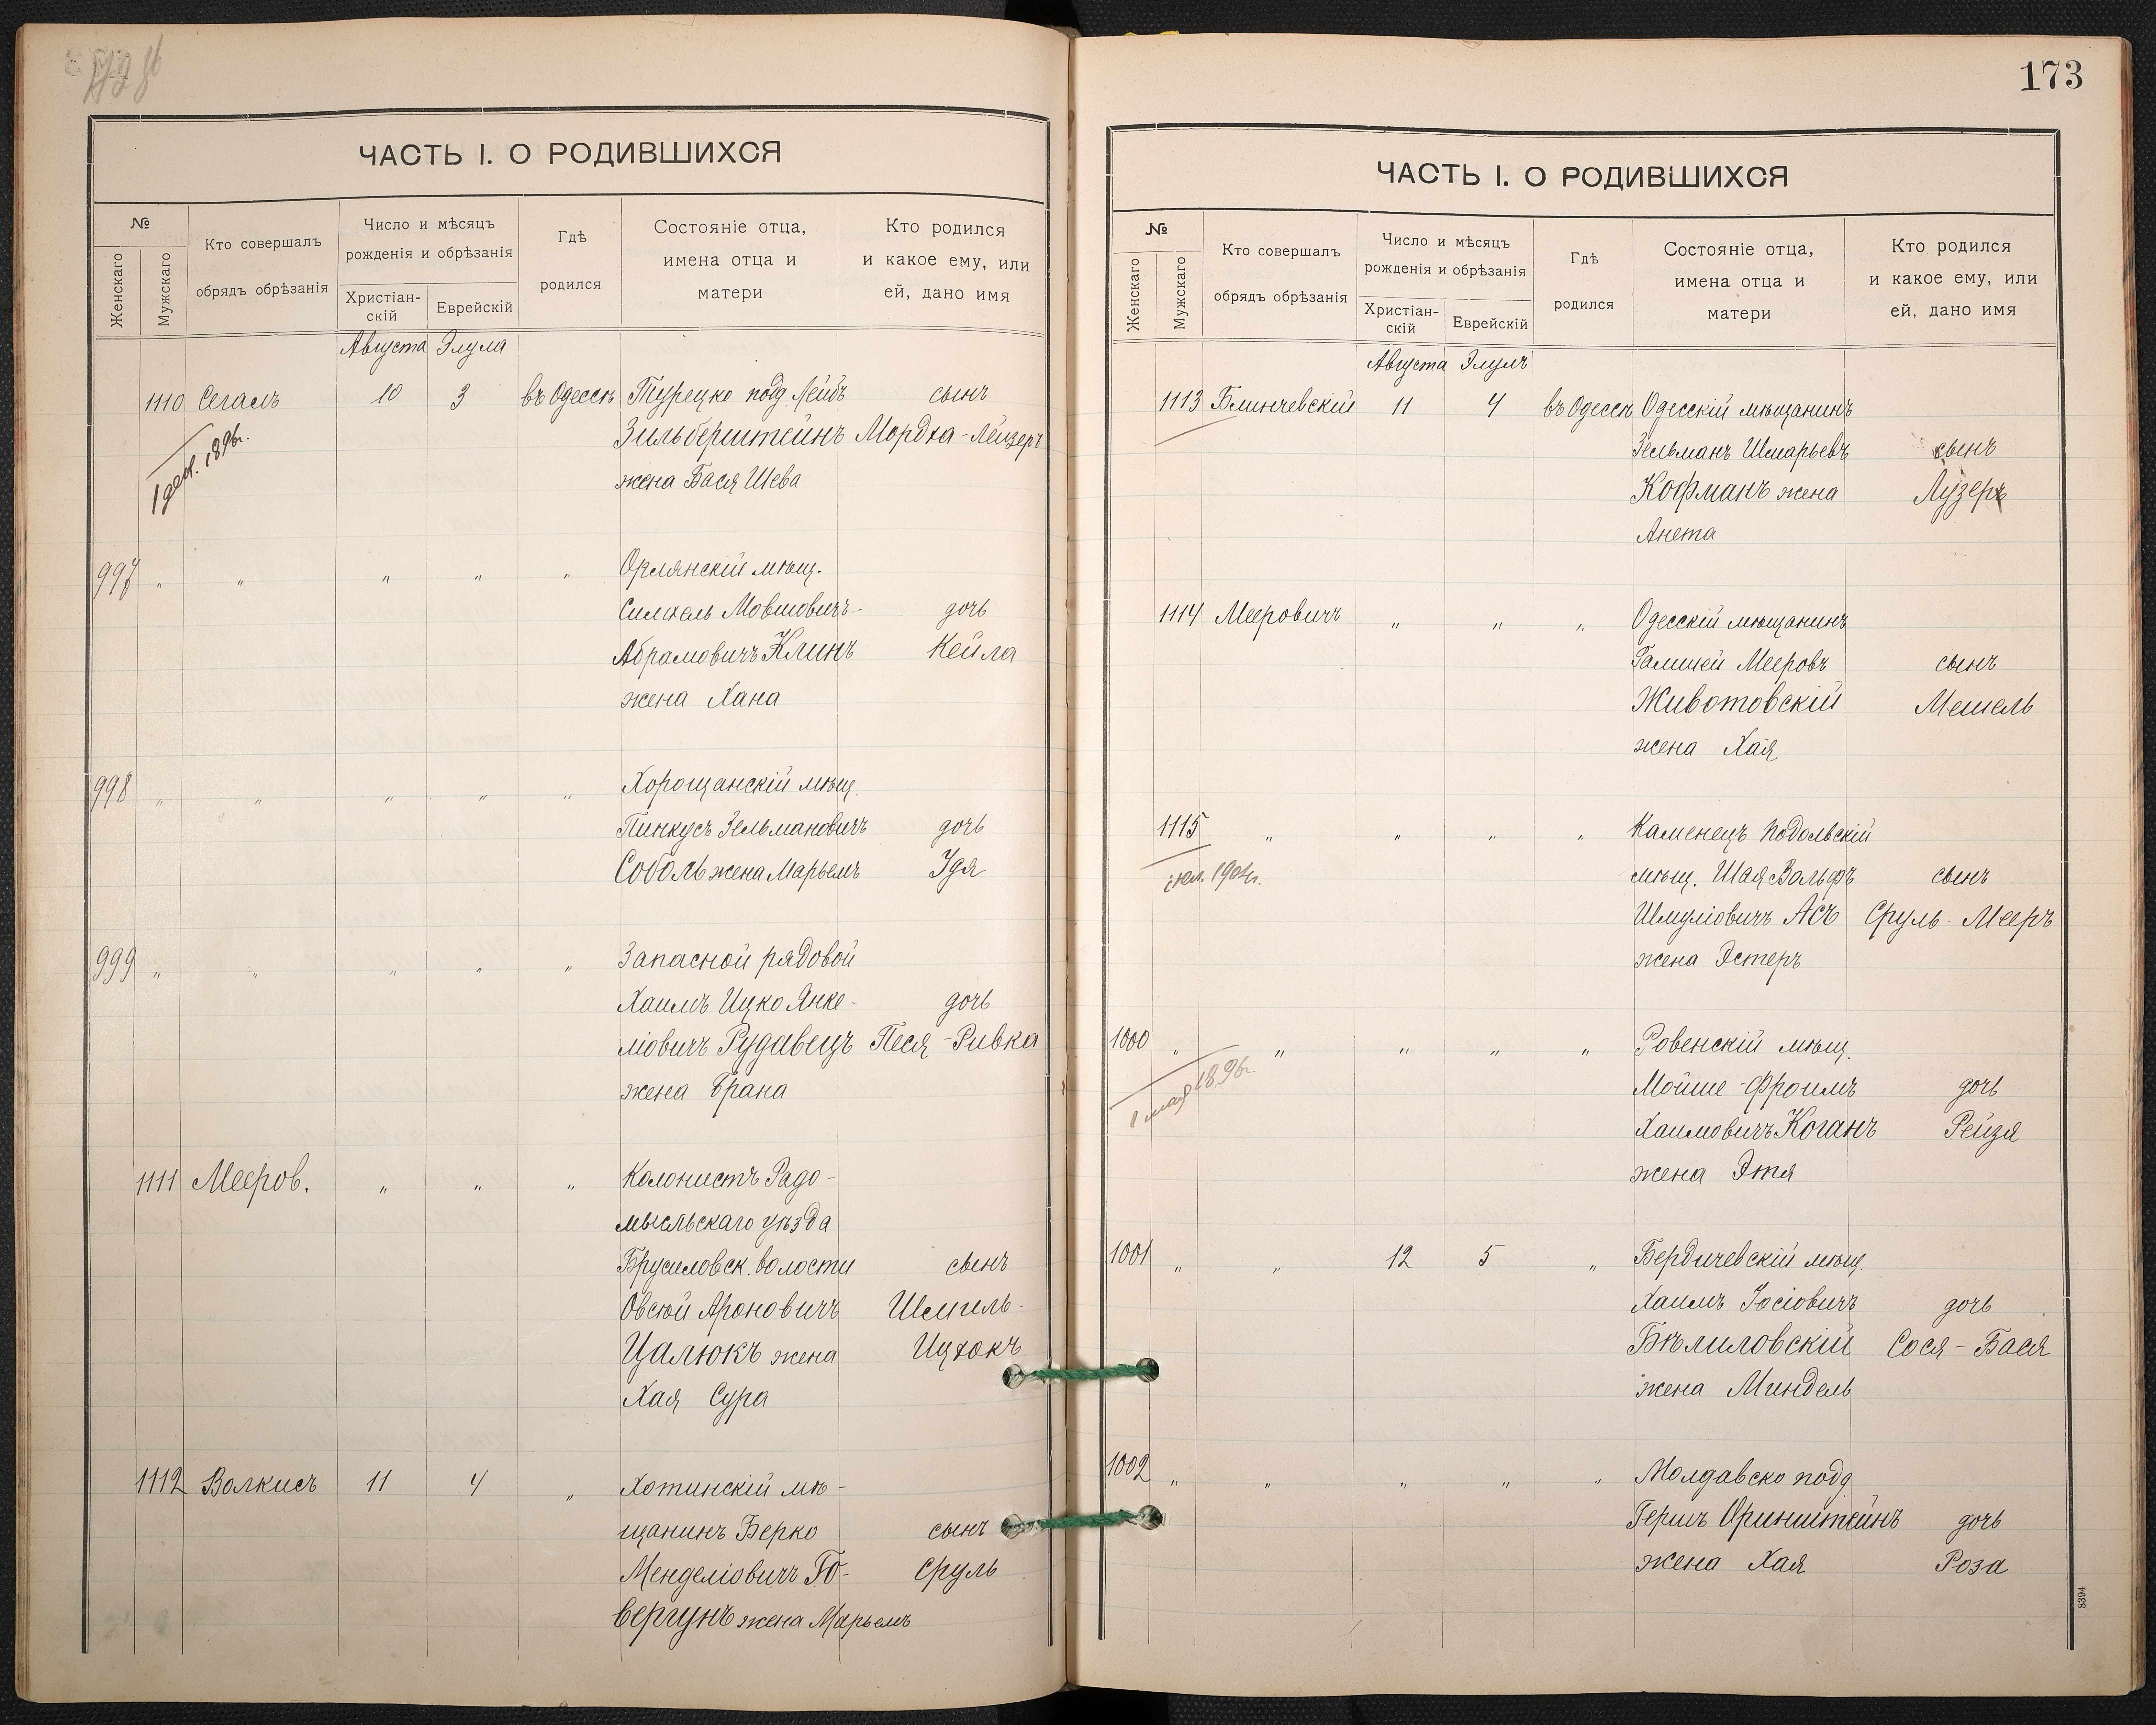 ЧАСТЬ I. О РОДИВШИХСЯ
№
Женскаго
Мужскаго
Кто совершалъ
обрядъ обрѣзанія
Число и мѣсяцъ
рожденія и обрѣзанія
Христіан-
скій
Еврейскій
Гдѣ
родился
Состояніе отца,
имена отца и
матери
Кто родился
и какое ему, или
ей, дано имя
Августа Элула
1110 Сегалъ 10 3 въ Одессѣ Турецко подд. Лейбъ сынъ
Зильберштейнъ Мордха-Лейзеръ
1 дек. 1896г.
жена Бася Шева
997 " " " " " Орлянскій мѣщ.
Симхель Мовшовичъ- дочь
Абрамовичъ Клинъ Кейла
жена Хана
998 " " " " " Хорощанскій мѣщ.
Пинкусъ Зельмановичъ дочь
Соболь жена Марьемъ Удя
999 " " " " " Запасной рядовой
Хаимъ Ицко Янке- дочь
ліовичъ Рудавецъ Песя-Ривка
жена Брана
1111 Мееров. " " " Колонистъ Радо-
мысльскаго уѣзда
Брусиловск. волости сынъ
Овсюй Ароновичъ Шмиль-
Цалюкъ жена Ицхокъ
Хая Сура
1112 Волкисъ 11 4 " Хотинскій мѣ-
щанинъ Берко сынъ
Менделіовичъ Го- Сруль
вергунъ жена Марьемъ
173
ЧАСТЬ I. О РОДИВШИХСЯ
№
Женскаго
Мужскаго
Кто совершалъ
обрядъ обрѣзанія
Число и мѣсяцъ
рожденія и обрѣзанія
Христіан-
скій
Еврейскій
Гдѣ
родился
Состояніе отца,
имена отца и
матери
Кто родился
и какое ему, или
ей, дано имя
Августа Элулъ
1113 Блинчевскій 11 4 въ Одессѣ Одесскій мѣщанинъ
Зельманъ Шмарьевъ сынъ
Кофманъ жена Лузеръ
Анета
1114 Мееровичъ " " " Одесскій мѣщанинъ
Гамшей Мееровъ сынъ
Животовскій Мешель
жена Хая
1115 " " " " Каменецъ Подольскій
мѣщ. Шая Вольфъ сынъ
1904г.
Шмуліовичъ Асъ Сруль-Мееръ
жена Эстеръ
1000 " " " " " Ровенскій мѣщ.
Мойше-Фроимъ дочь
1 мая 1896г.
Хаимовичъ Коганъ Рейзя
жена Этя
1001 " " 12 5 " Бердичевскій мѣщ.
Хаимъ Іосіовичъ дочь
Бѣлиловскій Сося-Бася
жена Миндель
1002 " " " " " Молдавско подд
Гершъ Оринштейнъ дочь
жена Хая Роза
8394